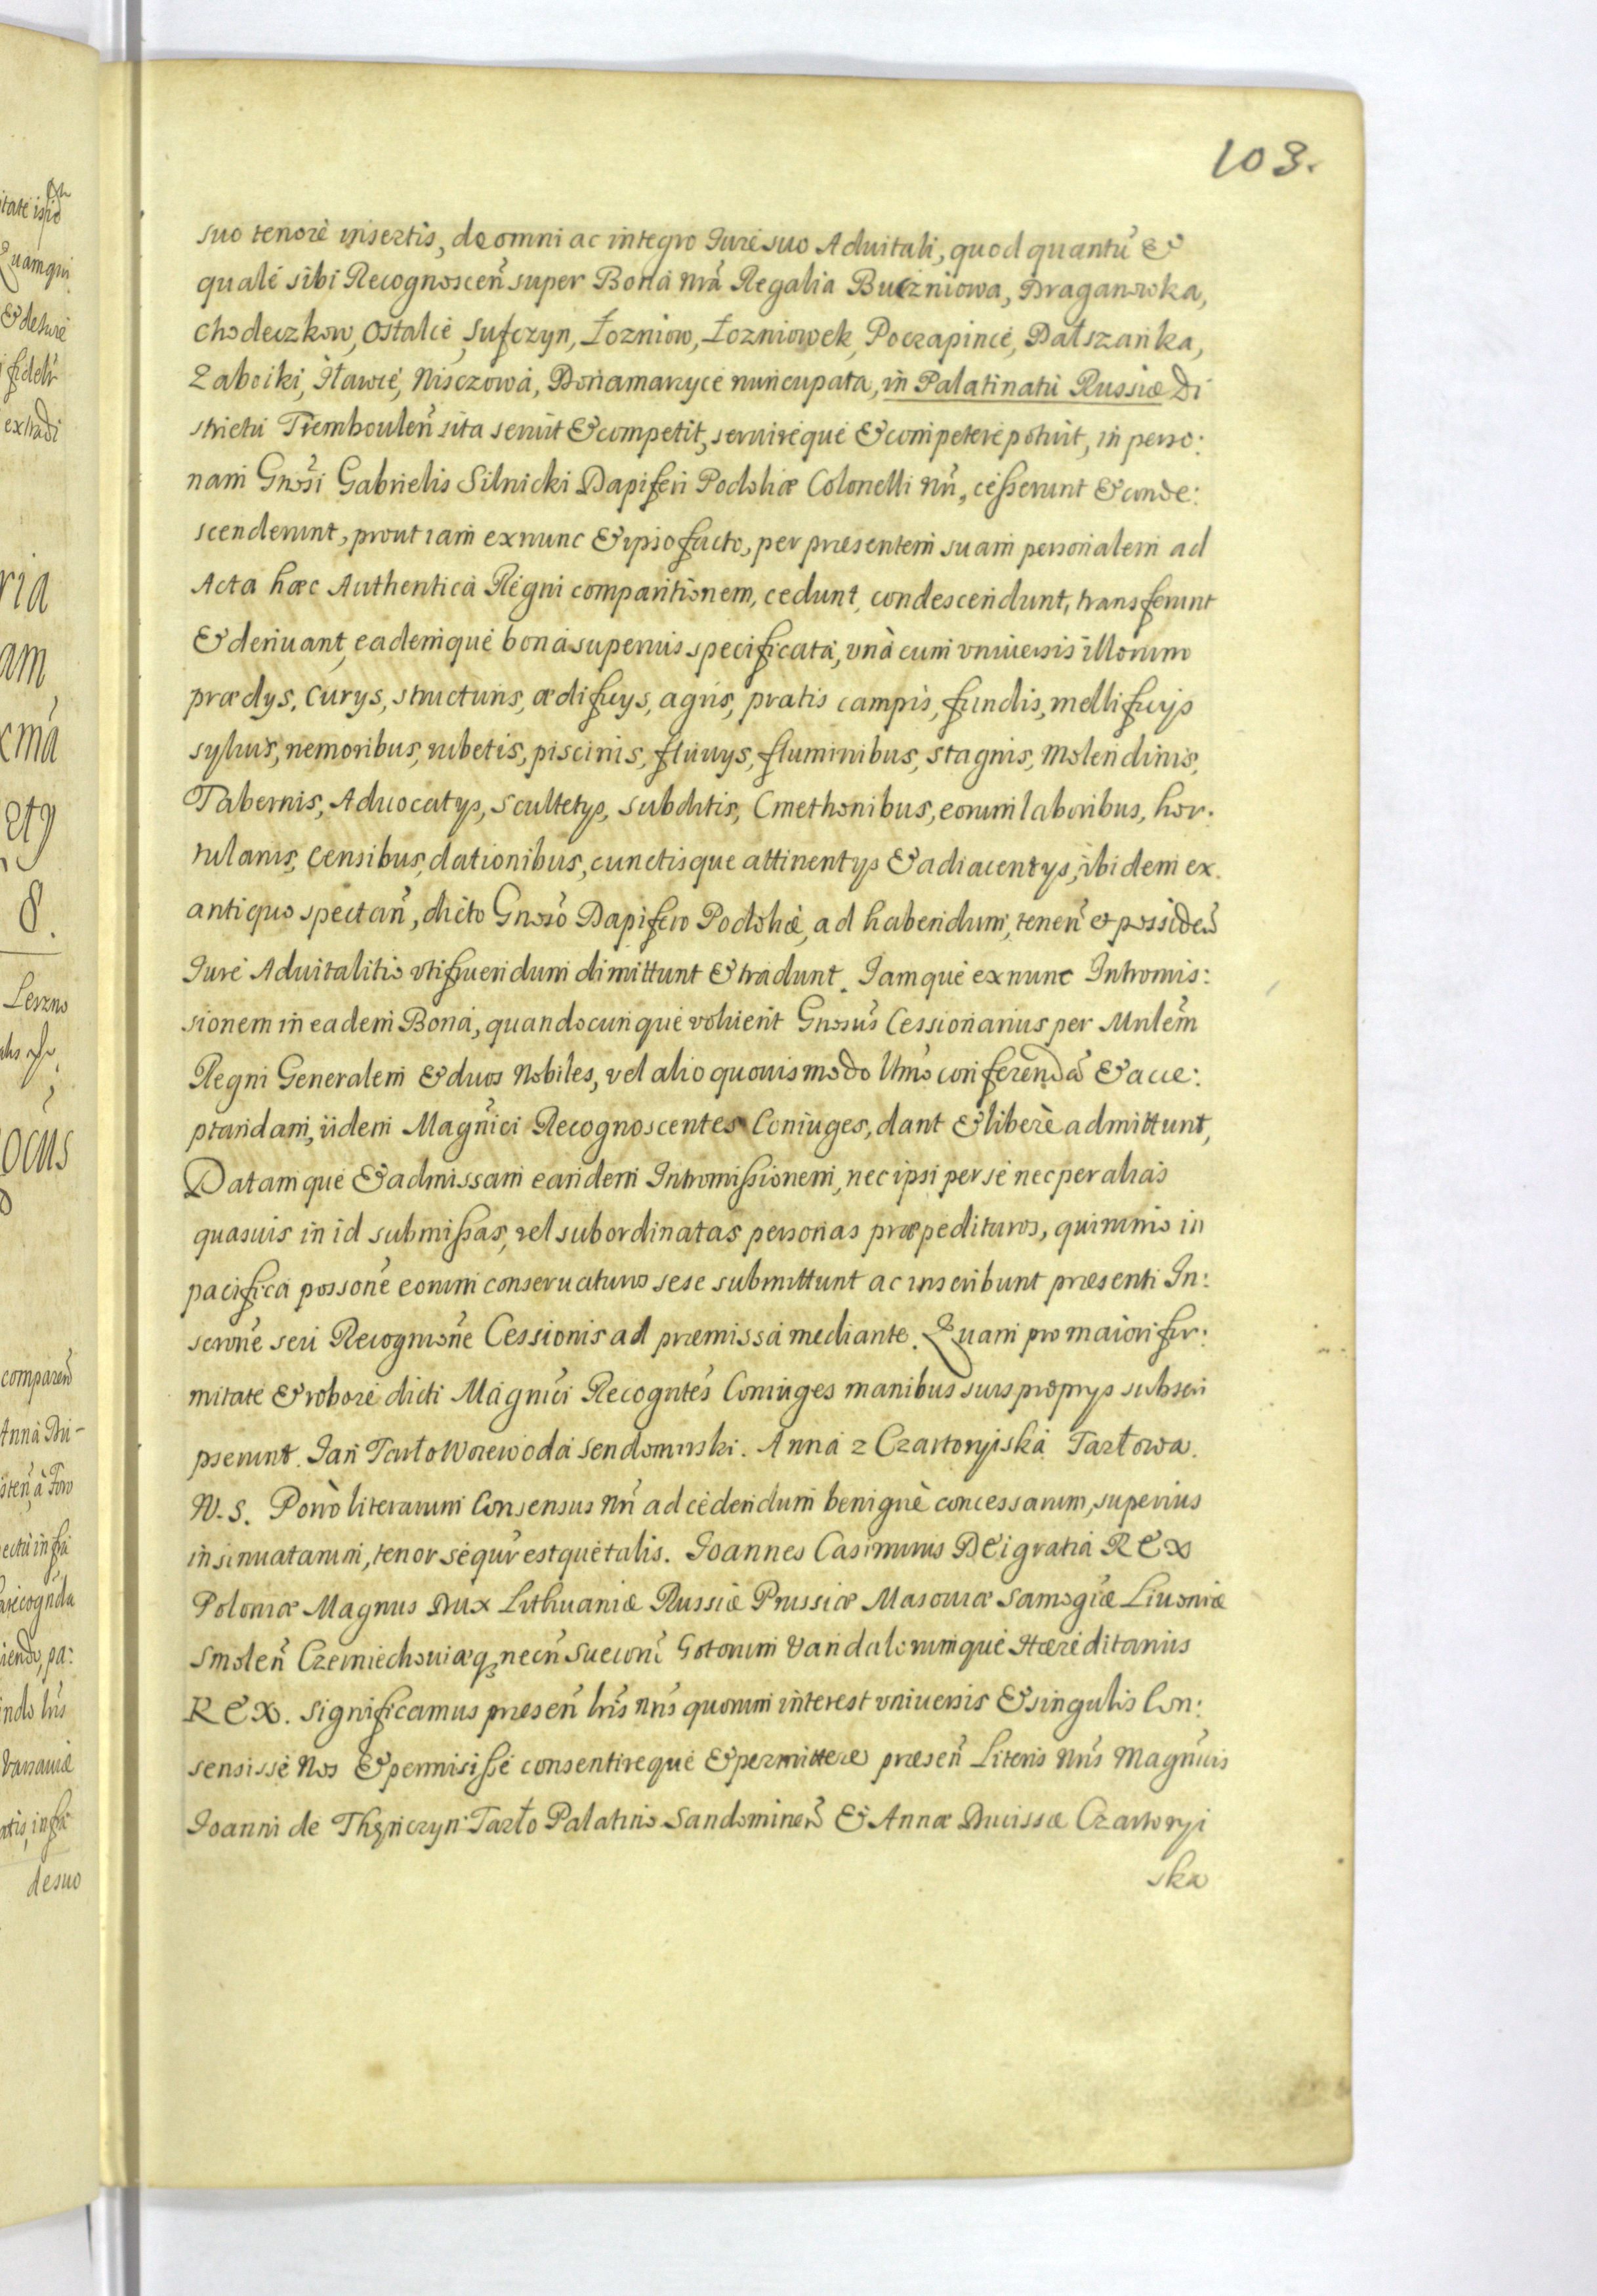 103.
suo tenore insertis, de omni ac integro Iure suo Aduitali, quod quantũ &
quale sibi Recognosceñ super Bona nrã Regalia Buczniowa, Draganowka,
Chodeczkow, Ostalce, Sufczyn, Łozniow, Łozniowek, Poczapince, Dałszanka,
Zaboiki, Iławce, Nisczowa, Bonamaryce nuncupata, in Palatinatu Russiæ Di
strictu Trembouleñ sita seruit & competit, seruireque & competere potuit, in perso:
nam Gnõsi Gabrielis Silnicki Dapiferi Podoliæ Colonelli nrĩ, cesserunt & conde:
scenderunt, prout iam exnunc & ipso facto, per præsentem suam personalem ad
Acta hæc Authentica Regni comparitionem, cedunt, condescendunt, transferunt
& deriuant, eademque bona superius specificata, vnà cum vniuersis illorum
prædys, Curys, structuris, ædificys, agris, pratis campis, fundis, mellificijs
syluis, nemoribus, rubetis, piscinis, fluuys, fluminibus, stagnis, Molendinis,
Tabernis, Aduocatys, Scultetys, subditis, Cmethonibus, eorum laboribus, hor:
tulanis, Censibus, dationibus, cunctisque attinentys & adiacentys, ibidem ex
antiquo spectañ, dicto Gnõso Dapifero Podoliæ, ad habendum, teneñ et possideñ
Iure Aduitalitio vtifruendum dimittunt & tradunt. Iamque exnunc Intromis:
sionem in eadem Bona, quandocunque voluerit Gnosũs Cessionarius per Mnlẽm
Regni Generalem & duos Nobiles, vel alio quouis modo ltmõ conferendã & acce:
ptandam, ijdem Magñici Recognoscentes Coniuges, dant & liberè admittunt,
Datamque & admissam eandem Intromissionem, nec ipsi per se nec per alias
quasuis in id submissas, vel subordinatas personas præpedituros, quinimo in
pacifica possonẽ eorum conseruaturos sese submittunt ac inscribunt præsenti In:
scronẽ seu Recogninõne Cessionis ad præmissa mediante. Quam pro maiori fir:
mitate & robore dicti Magñici Recogntẽs Coniuges manibus suis proprys subscri
pserunt. Jan Tarło Woiewoda Sendomirski. Anna z Czartoryiska Tarłowa.
N. S. Porrò literarum Consensus nrĩ ad cedendum benignè concessarum, superius
insinuatarum, tenor sequr̃ estque talis. Joannes Casimirus Dei gratia REX
Poloniæ Magnus Dux Lithuaniæ Russiæ Prussiæ Masouiæ Samogiæ Liuoniæ
Smoleñ Czerniechouiæq; necñ Suecorũ Gotorum Vandalorumque Hæreditarius
REX. Significamus præseñ lrĩs nrĩs quorum interest vniuersis & singulis Con:
sensisse Nos & permisisse consentireque & permittere præseñ Literis nrĩs Magñicis
Joanni de Thęnczyn Tarło Palatino Sandomireñ & Annæ Ducissæ Czartoryi
ska